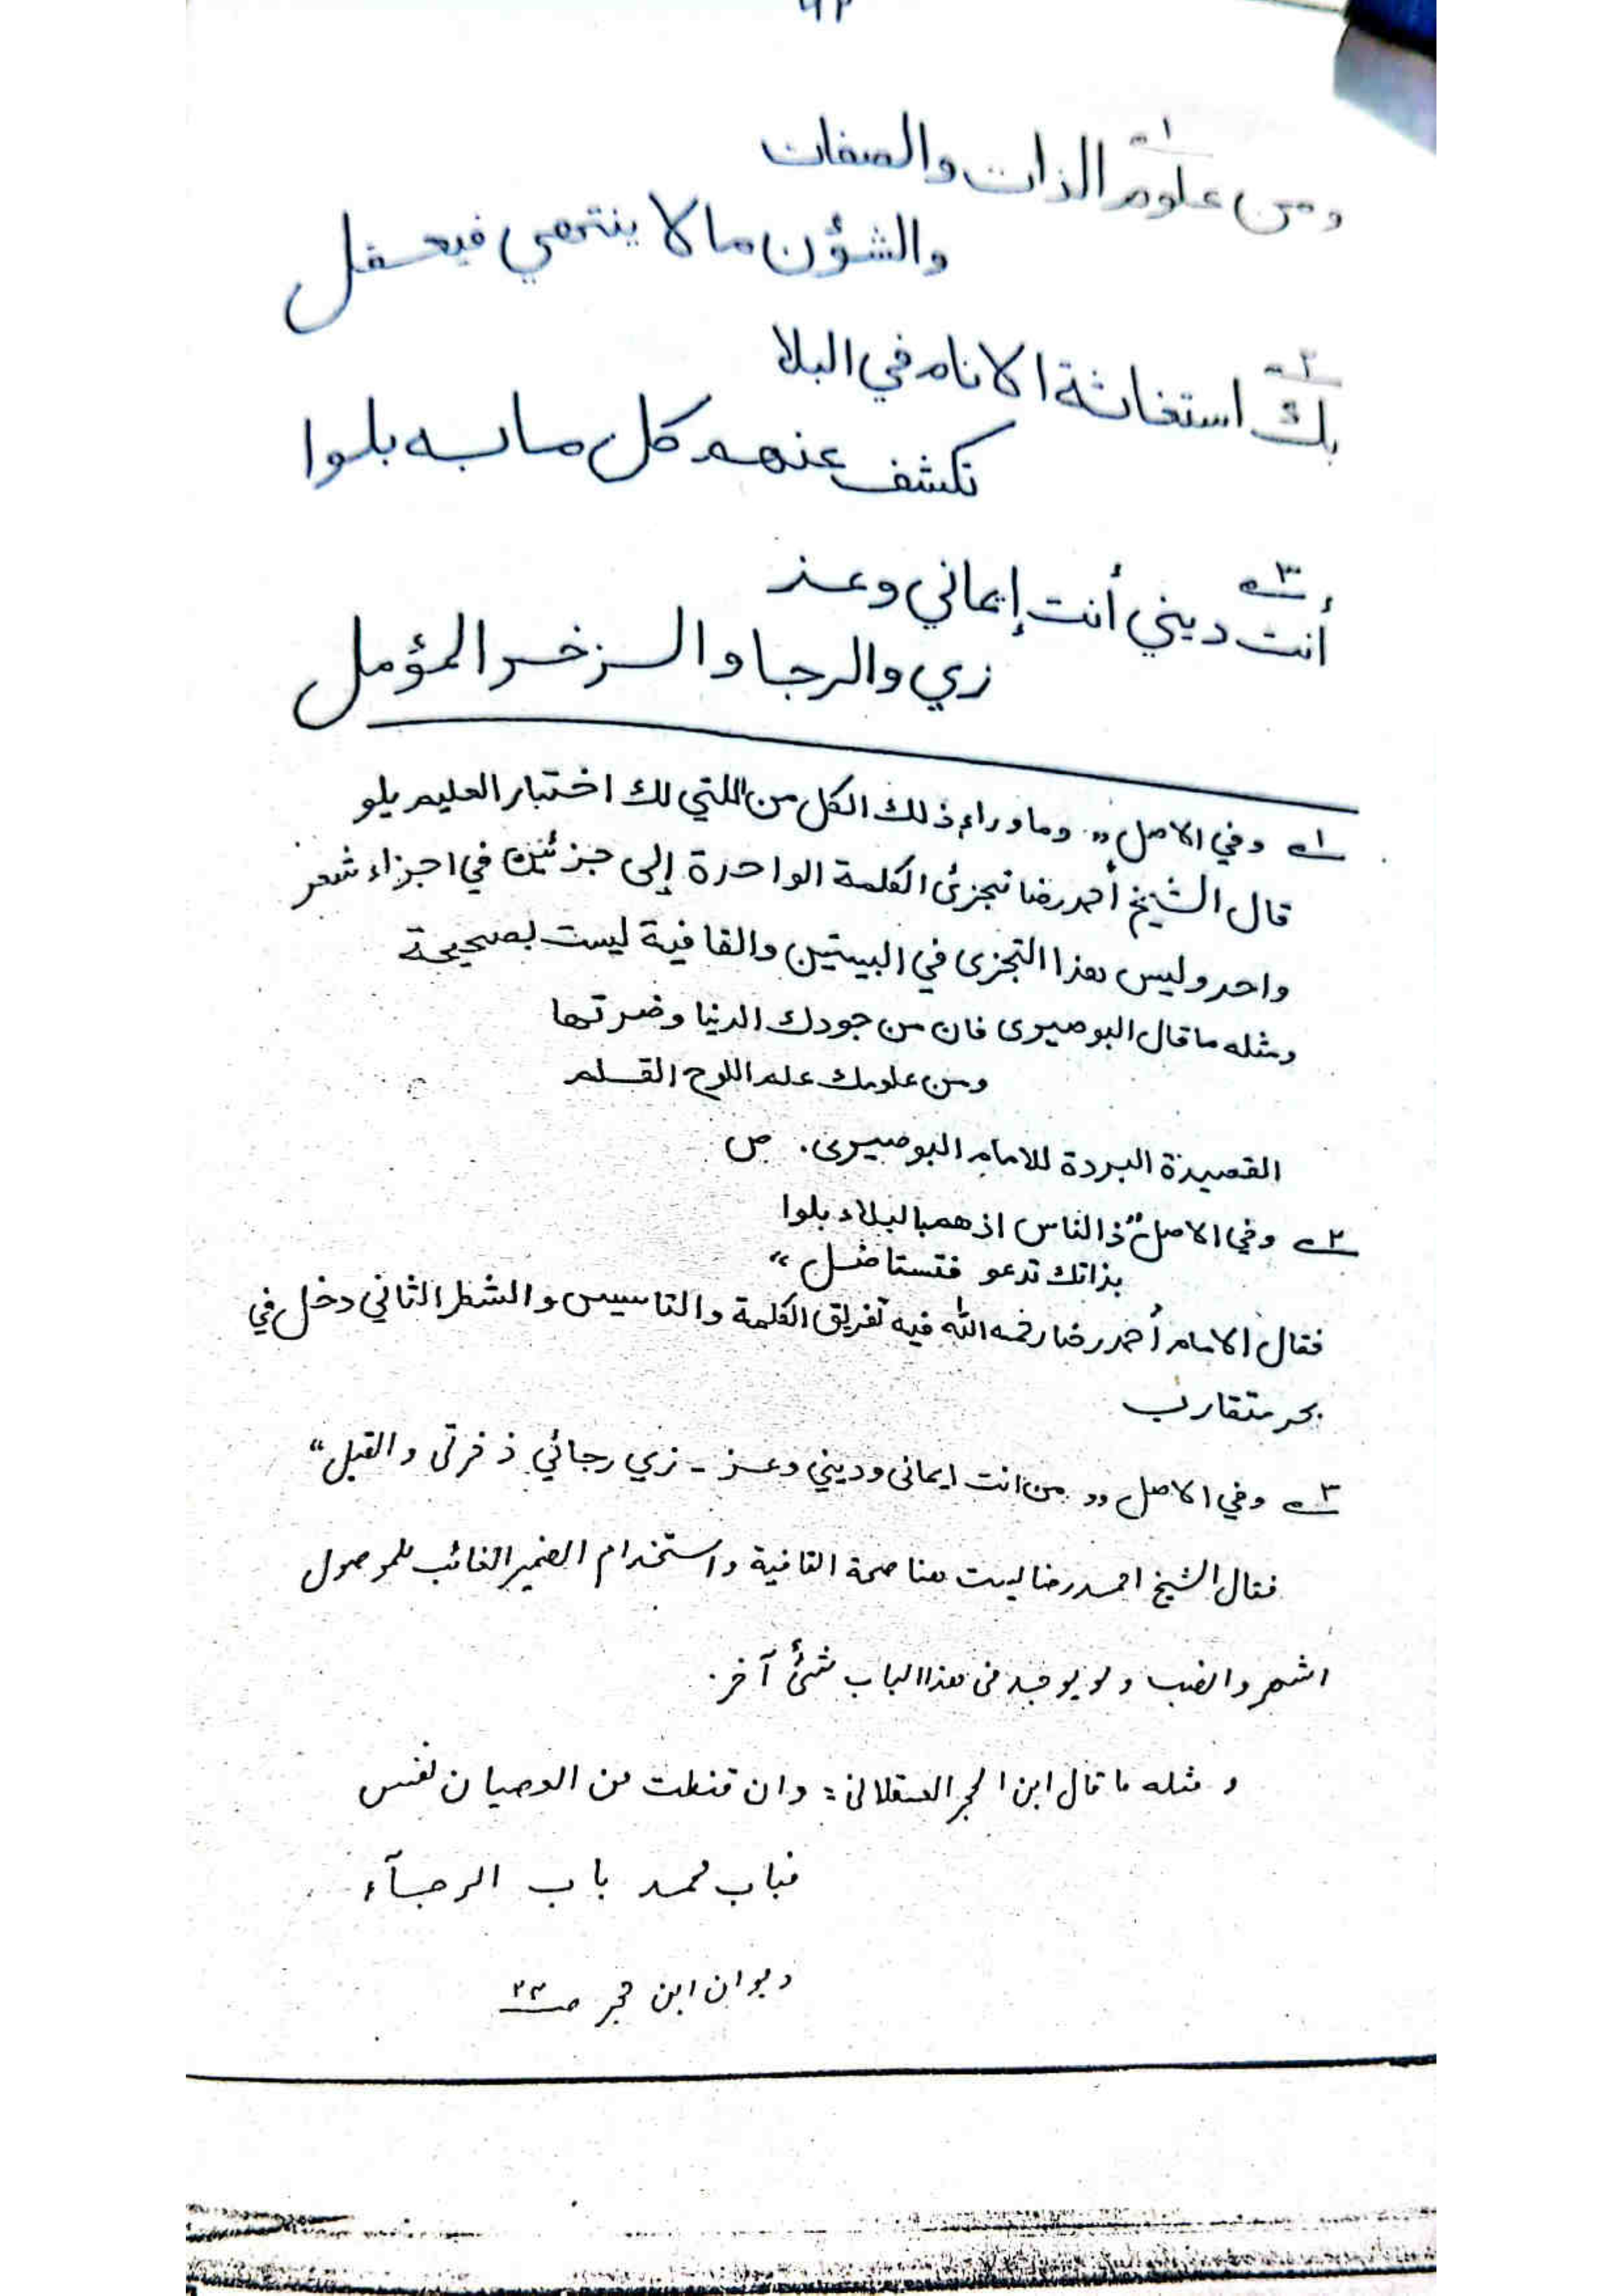 ٩٢
ومن علوم الذات والصفات
والشؤن مالا ينتهي فيحفل
بك استغاثة الانام في البلا
تكشف عنهم كل ما به بلوا
أنت ديني أنت إيماني وعز
زي والرجا والزخر المؤمل
١ وفي الاصل ,, وما وراء ذلك الكل من اللتي لك اختبار العليم يلو
قال الشيخ أحمد رضا تجزئ الكلمة الواحدة إلى جزئين في اجزاء شعر
واحد وليس هذا التجزى في البيتين والقافية ليست بصحيحة
ومثله ما قال البوصيرى فان من جودك الدنيا وضرتها
ومن علومك علم اللوح القلم
القصيدة البردة للامام البوصيرى. ص
٢ وفي الاصل "ذ الناس اذ هم بالبلاء بلوا
بذاتك تدعو فتستاضل "
فقال الامام أحمد رضا رحمه الله فيه تفريق الكلمة والتاسيس و الشطر الثاني دخل في
بحر متقارب
٣ وفي الاصل ,, من انت ايمانى وديني وعز - زي رجائي ذ خرتى والقبل "
فقال الشيخ احمد رضا ليست هنا صحة القافية واستخدام الضمير الغائب للموصول
اشهر و انصب و لو يوجد فى هذا الباب شئ آخر.
و مثله ما قال ابن الحجر العسقلانى : وان قنطت من العصيان نفس
فباب محمد باب الرجآء
ديوان ابن حجر ص ٢٣